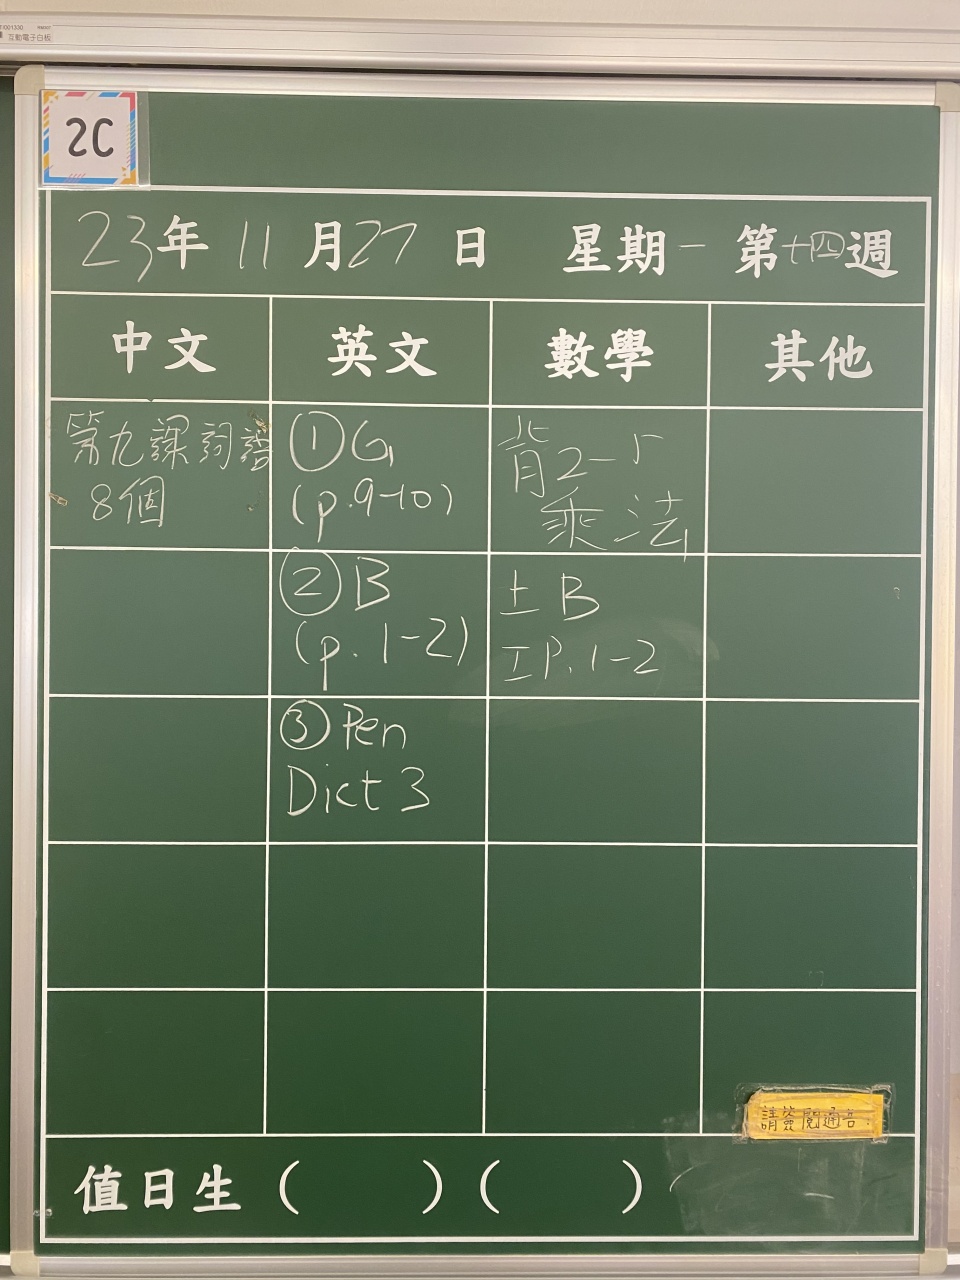 互動電子白板
2C
23年11月27日 星期一 第十四週
中文 英文 數學 其他
第九課詞語
8個
①G
(p.9-10)
背2-5
乘法
②B
(p.1-2)
上B
工P.1-2
③Pen
Dict 3
請簽閱通告
值日生 ( ) ( )